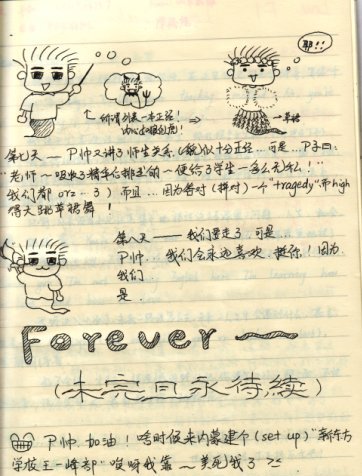 耶!!
草裙
第七天 — P帅又讲了师生关系,(貌)似十分正经…可是…P子曰:
"老师~吸收了精华后排出的一便给了学生一多么无私!"
我们都 orz…3) 而且…因为答对(拼对)一个"tragedy"而high
得大跳草裙舞!
第八天 —— 我们要走了.可是
P帅. 我们会永远喜欢.挺你!因为
我们
是
Forever~
(未完且永待续)
P帅.加油!啥时候来内蒙建个(set up)"新东方
学校王一峰部"哎呀我靠~美死我了 >_<